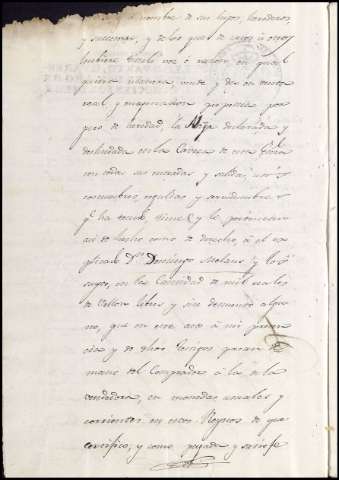 y a nombre de sus hijos, herederos
y succesores, y de los que de ellos ó otros
hubiere titulo voz ó razon, en qual
quiera manera, vende y da en venta
real y enagenacion perpetua por
juro de heredad, la Hoja declarada y
deslindada en la Caveza de esta
con todas sus entradas y salidas, usos
costumbres, regalias y servidumbres
q.e ha tenido, tiene, y le pertenecen
asi de hecho como de derecho, á el ex
plicado D.n Domingo y los
suyos, en la Cantidad de mil reales
de Vellon libres y sin descuento algu
no, que en este acto á mi presen
cia y de dhos testigos pasan de
mano del Comprador á la de la
vendedora, en monedas usuales y
corrientes en estos Reynos de que
certifico; y como pagada y satisfe